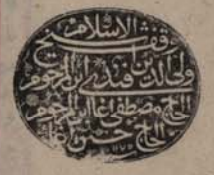 وقف شيخ الاسلام
ولى الدين افندى ابن المرحوم
الحاج مصطفى اغا ابن المرحوم
الحاج حسين اغا
١١٧٥